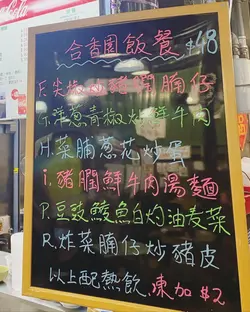 合香園飯餐 $48
F.尖椒炒豬潤腩仔
G.洋蔥青椒炒鮮牛肉
H.菜脯蔥花炒蛋
i.豬潤鮮牛肉湯麵
P.豆豉鯪魚白灼油麦菜
R.炸菜腩仔炒豬皮
以上配熱飲.凍加$2